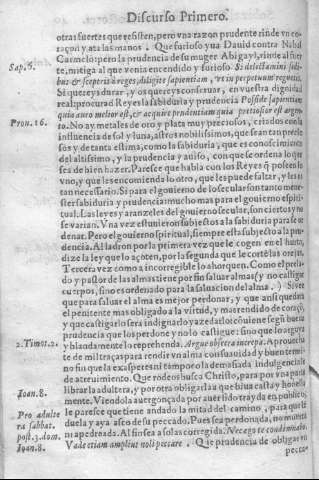 Discurso Primero.
otras fuertes que resisten, pero vna razon prudente rinde vn co-
raçon y ata las manos. Que furioso yua Dauid contra Nabal
Carmelo: pero la prudencia de su muger Abigayl, rinde al fuer
te, mitiga al que venia encendido y furioso. Si delectamini sedi
Sap. 6.
bus & sceptris ò reges, diligite sapientiam, vt in perpetuum regnetis.
Si quereys durar, y os quereys conseruar, en vuestra dignidad
real: procurad Reyes la sabiduria y prudencia Posside sapientiam
quia auro melior est, & acquire prudentiam quia pretiosior est argen-
Prou. 16.
to. No ay metales de oro y plata muy preciosos, criados con la
influencia de sol y luna, astros nobilissimos, que sean tan precio
sos y de tanta estima, como la sabiduria, que es conoscimiento
del altissimo, y la prudencia y auiso, con que se ordena lo que
sea de bien hazer. Paresce que habla con los Reyes q̃ posseen lo
vno, y que les encomienda lo otro, que les puede faltar, y les es
tan necessario. Si para el gouierno de lo secular son tanto mene-
ster sabiduria y prudencia: mucho mas para el gouierno espiri-
tual. Las leyes y aranzeles del gouierno secular, son ciertos y no
se varian. Vna vez estuuieron subjectos a la sabiduria para se or
denar. Pero el gouierno spiritual, siempre esta subjecto a la pru-
dencia. Al ladron por la primera vez que le cogen en el hurto,
dize la ley que lo açoten, por la segunda que le cortē las orejas.
Tercera vez como a incorregible lo ahorquen. Como el perla-
do y pastor de las almas tiene por fin saluar almas (y no castigar
cuerpos, sino es ordenado para la saluacion del alma.) Si vee
que para saluar el alma es mejor perdonar, y que ansi queda
el penitente mas obligado a la virtud, y mas rendido de coraçō,
y que castigarlo sera indignarlo
prudencia que los perdone y no lo castigue: sino que lo arguya
y blandamente lo reprehenda. Argue obsecra increpa. Aprouecha
2. Timot. 2.
te de mil traças para rendir vn alma con suauidad y buen termi-
no sin que la exasperes ni tampoco la demasiada indulgencia le
de atreuimiento. Que rodeos busca Christo, para por vna parte
librar la adultera, y por otra obligarla a que biua casta y honesta
Ioan. 8.
mente. Viendola auergonçada por auer sido trayda en publico,
le paresce que tiene andado la mitad del camino, para que le
Pro adulte
duela y aya asco de su peccado. Pues sea perdonada, no muera
ra sabbat.
ni apedreada. Al fin sea a solas corregida. Nec ego te condemnabo.
post. 3. dom.
Vade et iam amplius noli peccare. Que prudencia de obligar en
Ioan. 8.
pecca-